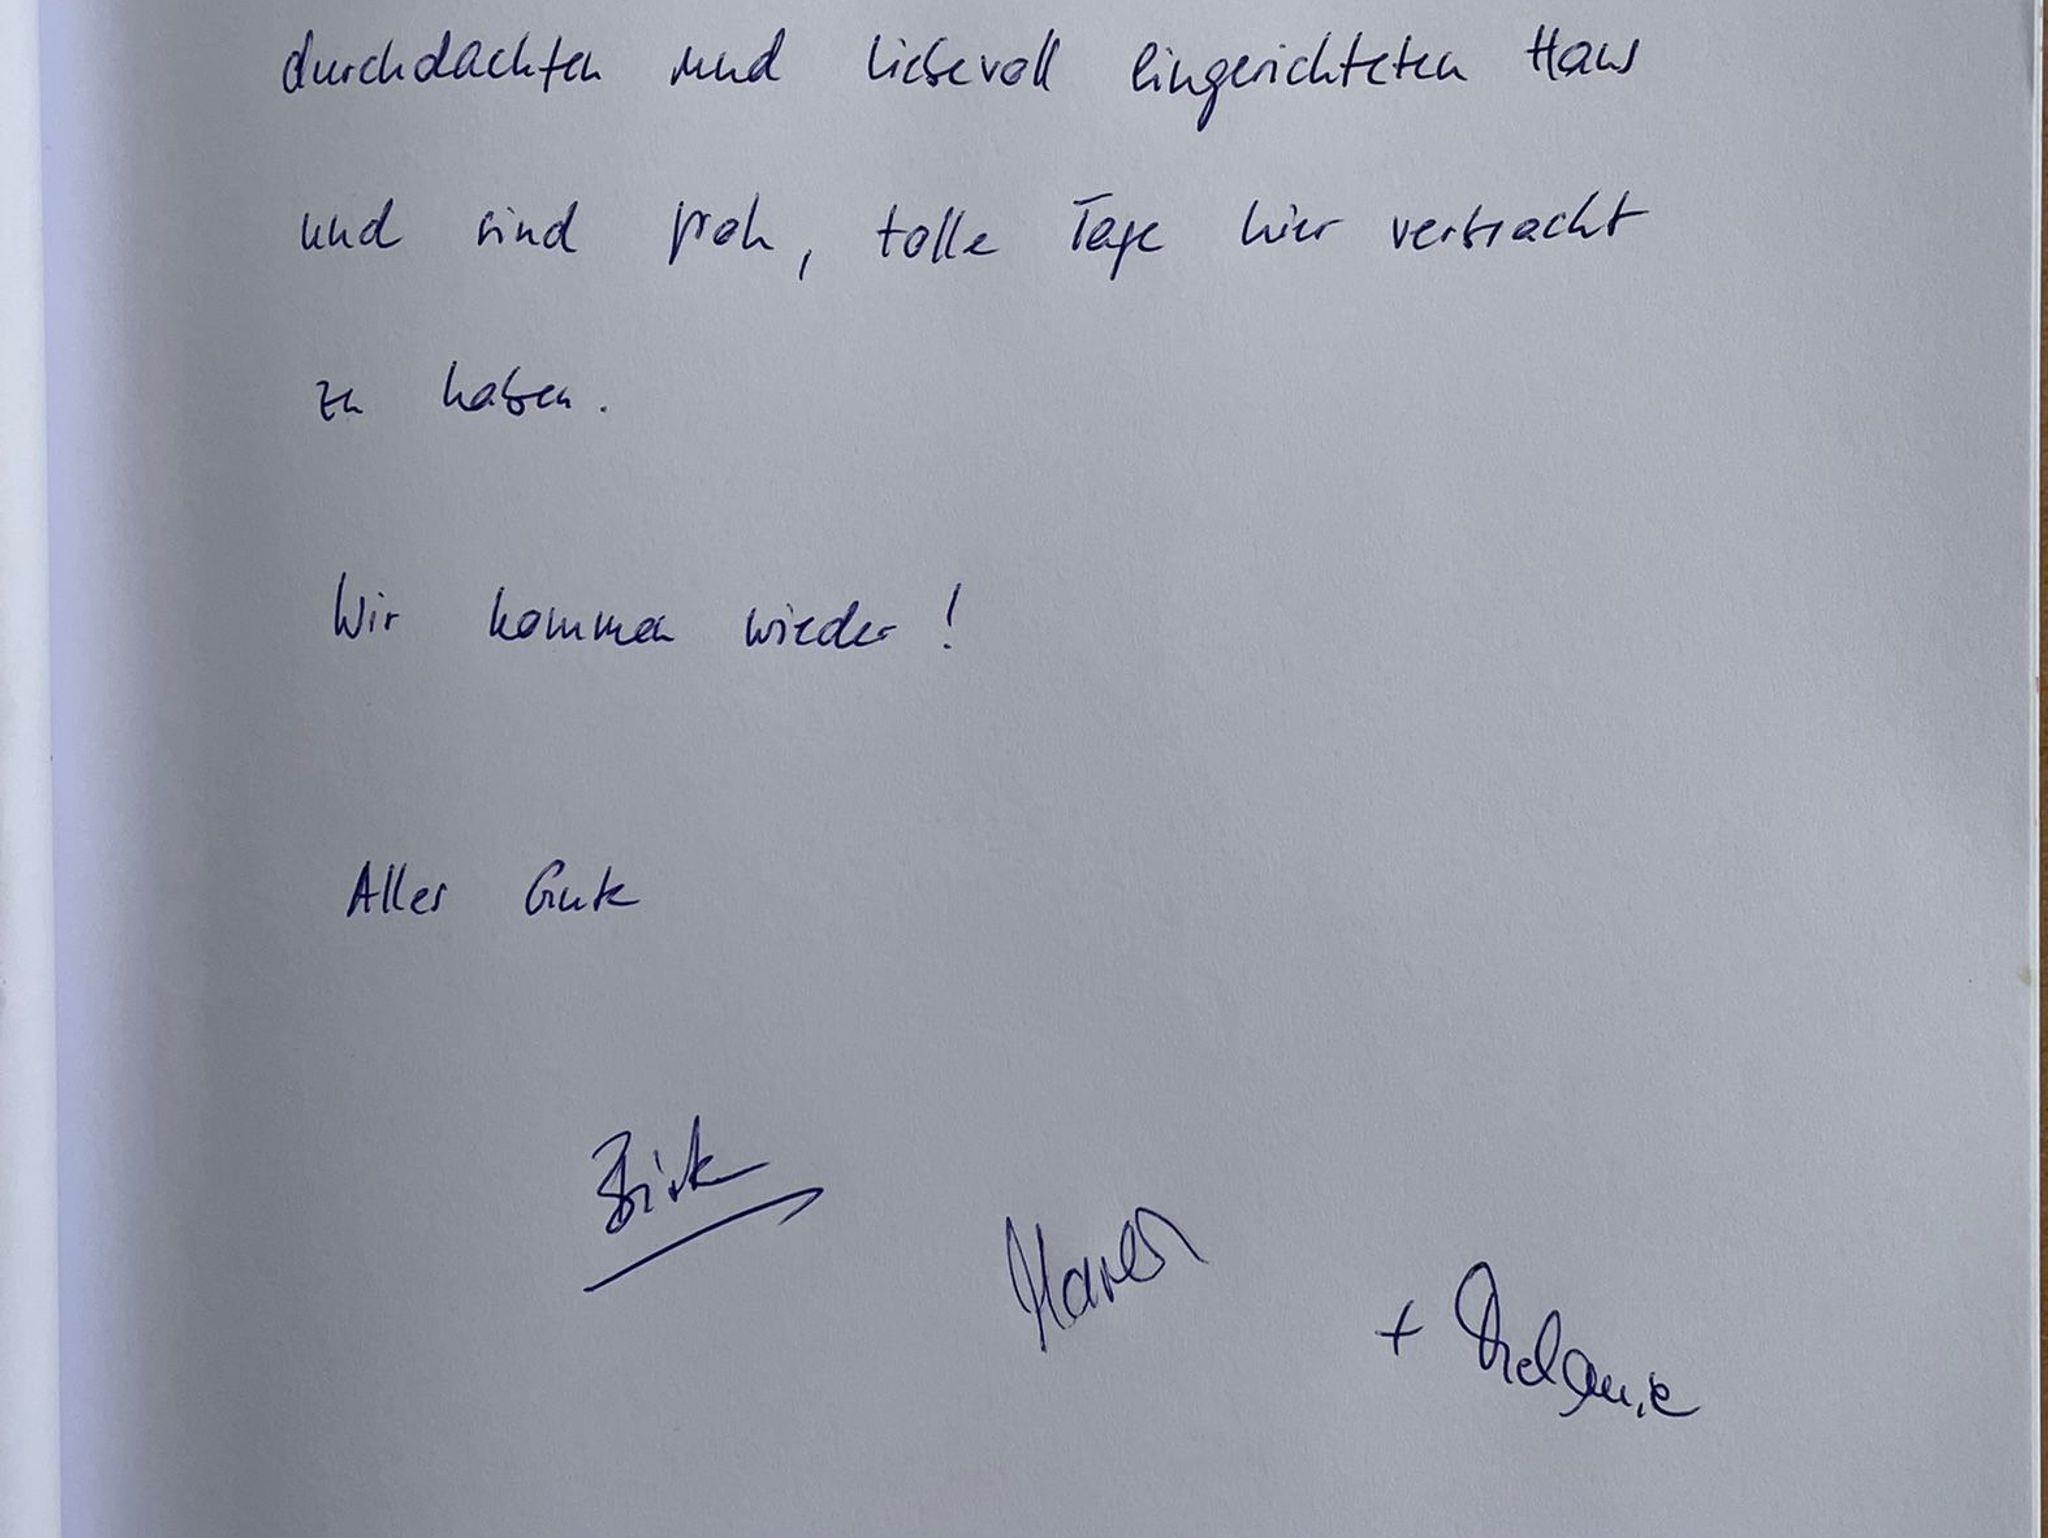 durchdachten und liebevoll eingerichteten Haus
und sind froh, tolle Tage hier verbracht
zu haben.
Wir kommen wieder!
Alles Gute
Birk
+ Melanie